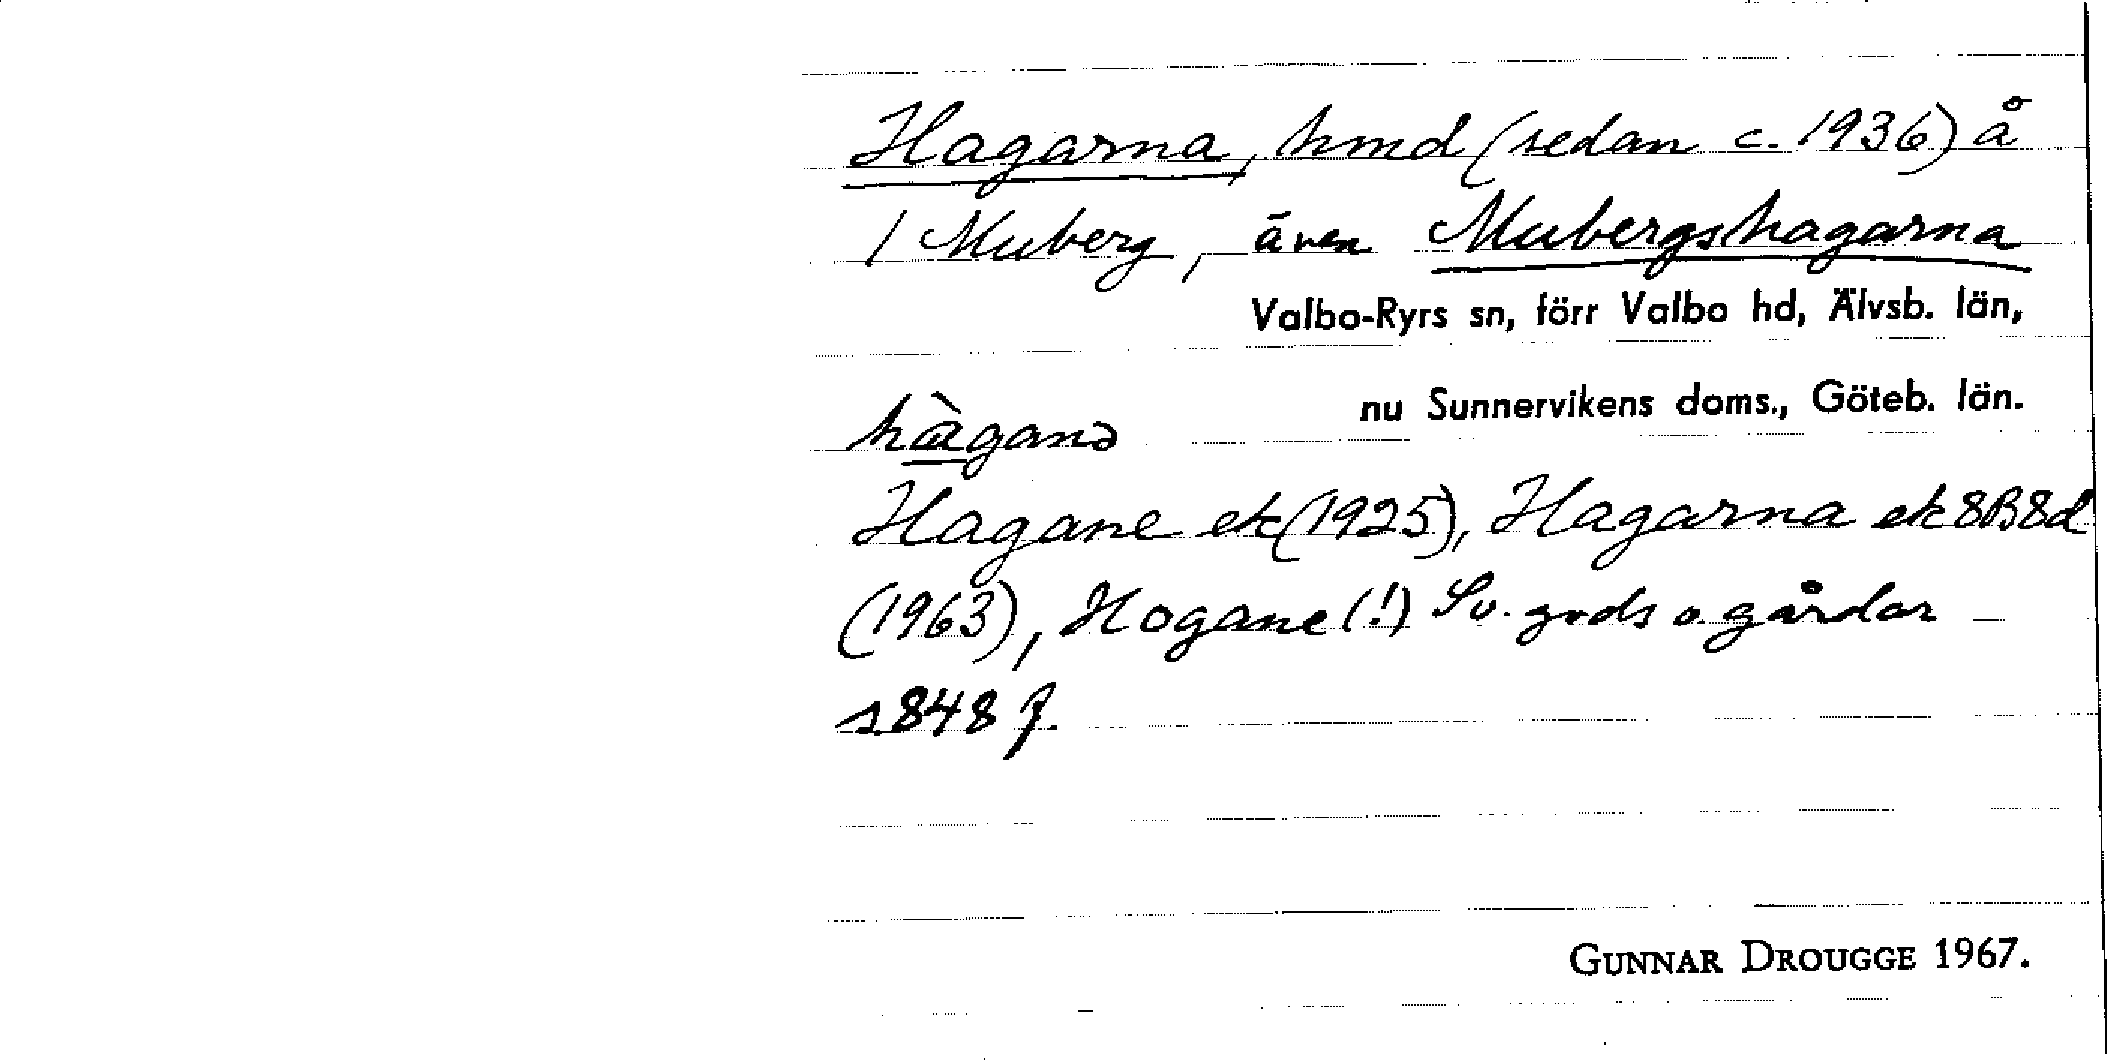 Hagarna, hmd (sedan c. 1936) å
1 Muberg, även Mubergshagarna
Valbo-Ryrs sn, förr Valbo hd, Älvsb. län,
nu Sunnervikens doms., Göteb. län.
hàganə
Hagane ek (1925), Hagarna ek 8B8d
(1963), Hogane (!) Sv. gods o. gårdar
s 848 f.
GUNNAR DROUGGE 1967.